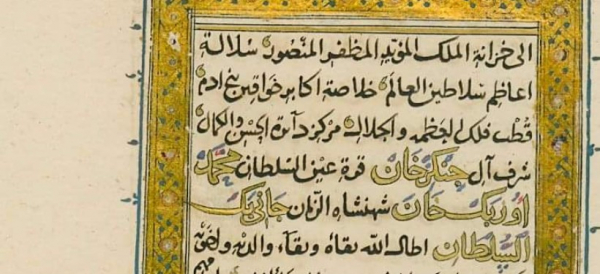 الى خزانة الملك المؤيد المظفر المنصور سلالة
اعاظم سلاطين العالم خلاصة اكابر خواقين بنى ادم
قطب فلك العظمه والجلال مركز دآئرة الحسن والكمال
شرف آل جنكز خان قرة عين السلطان محمد
اوزبك خان شهنشاه الزمان جانى بك
السلطان اطال الله بقاه وبقاء والديه